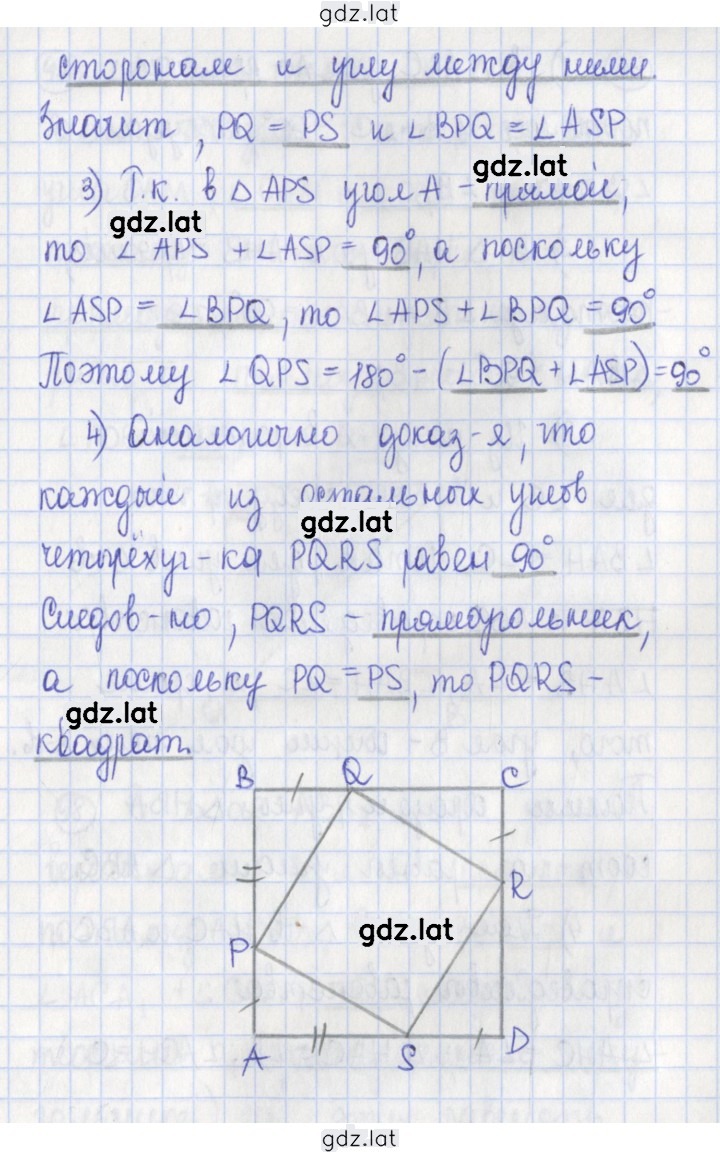 gdz.lat
сторонам и углу между ними.
Значит, PQ = PS и ∠BPQ = ∠ASP
gdz.lat
3) Т.к. в △APS угол A - прямой,
gdz.lat
то ∠APS + ∠ASP = 90°, а поскольку
∠ASP = ∠BPQ, то ∠APS + ∠BPQ = 90°
Поэтому ∠QPS = 180° - (∠BPQ + ∠ASP) = 90°
4) Аналогично доказ-я, что
каждый из остальных углов
gdz.lat
четырёхуг-ка PQRS равен 90°
Следов-но, PQRS - прямоугольник,
а поскольку PQ = PS, то PQRS -
gdz.lat
квадрат.
B Q C
R
gdz.lat
P
A S D
gdz.lat